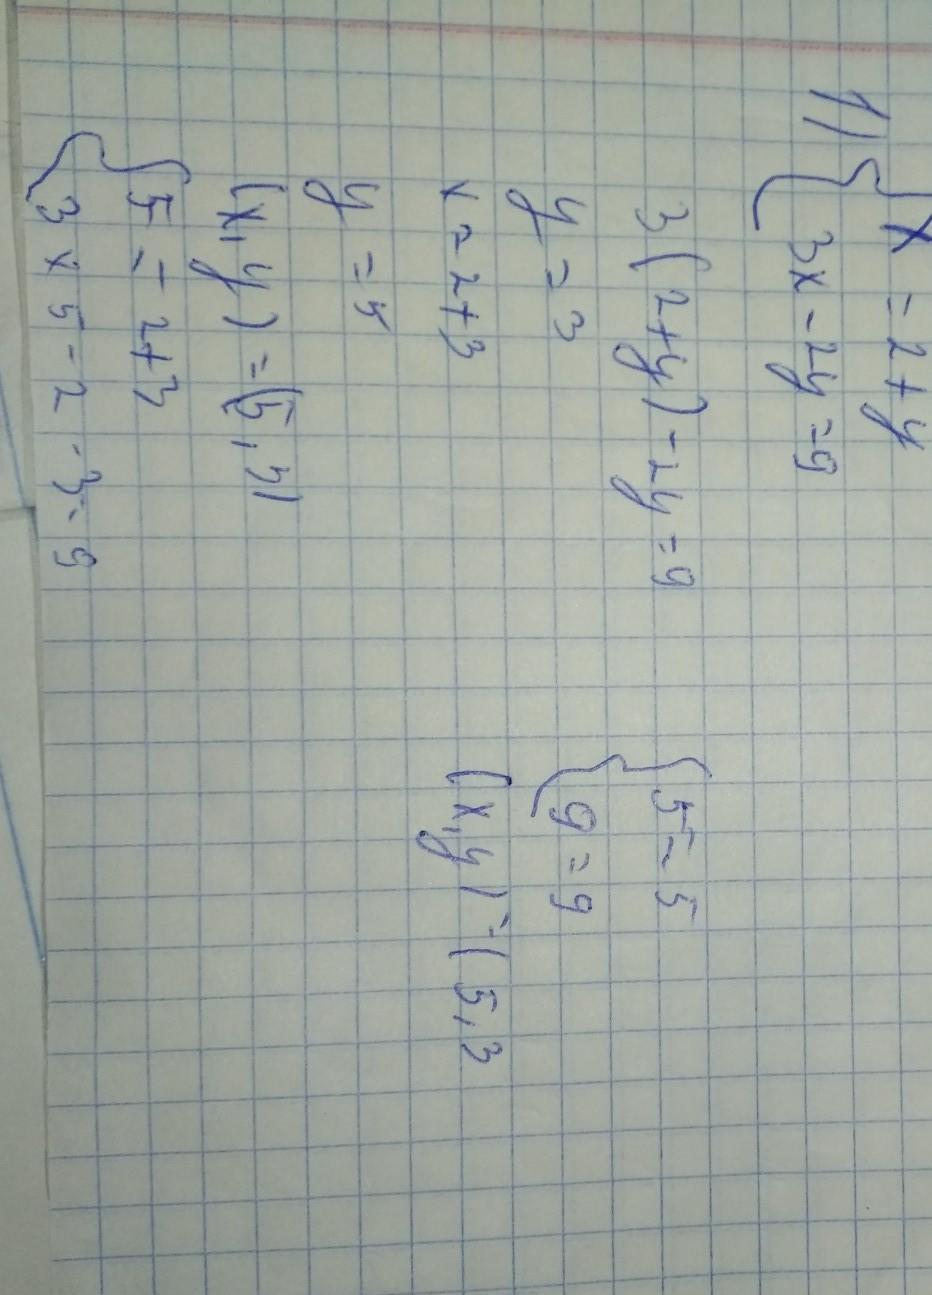 1) { x = 2 + y
{ 3x - 2y = 9
3 ( 2+y ) - 2y = 9
y = 3
x = 2+3
y = 5
(x, y) = (5, 3)
{ 5 = 2+3
{ 3 x 5 - 2 - 3 = 9
{ 5 = 5
{ 9 = 9
(x, y) = (5, 3